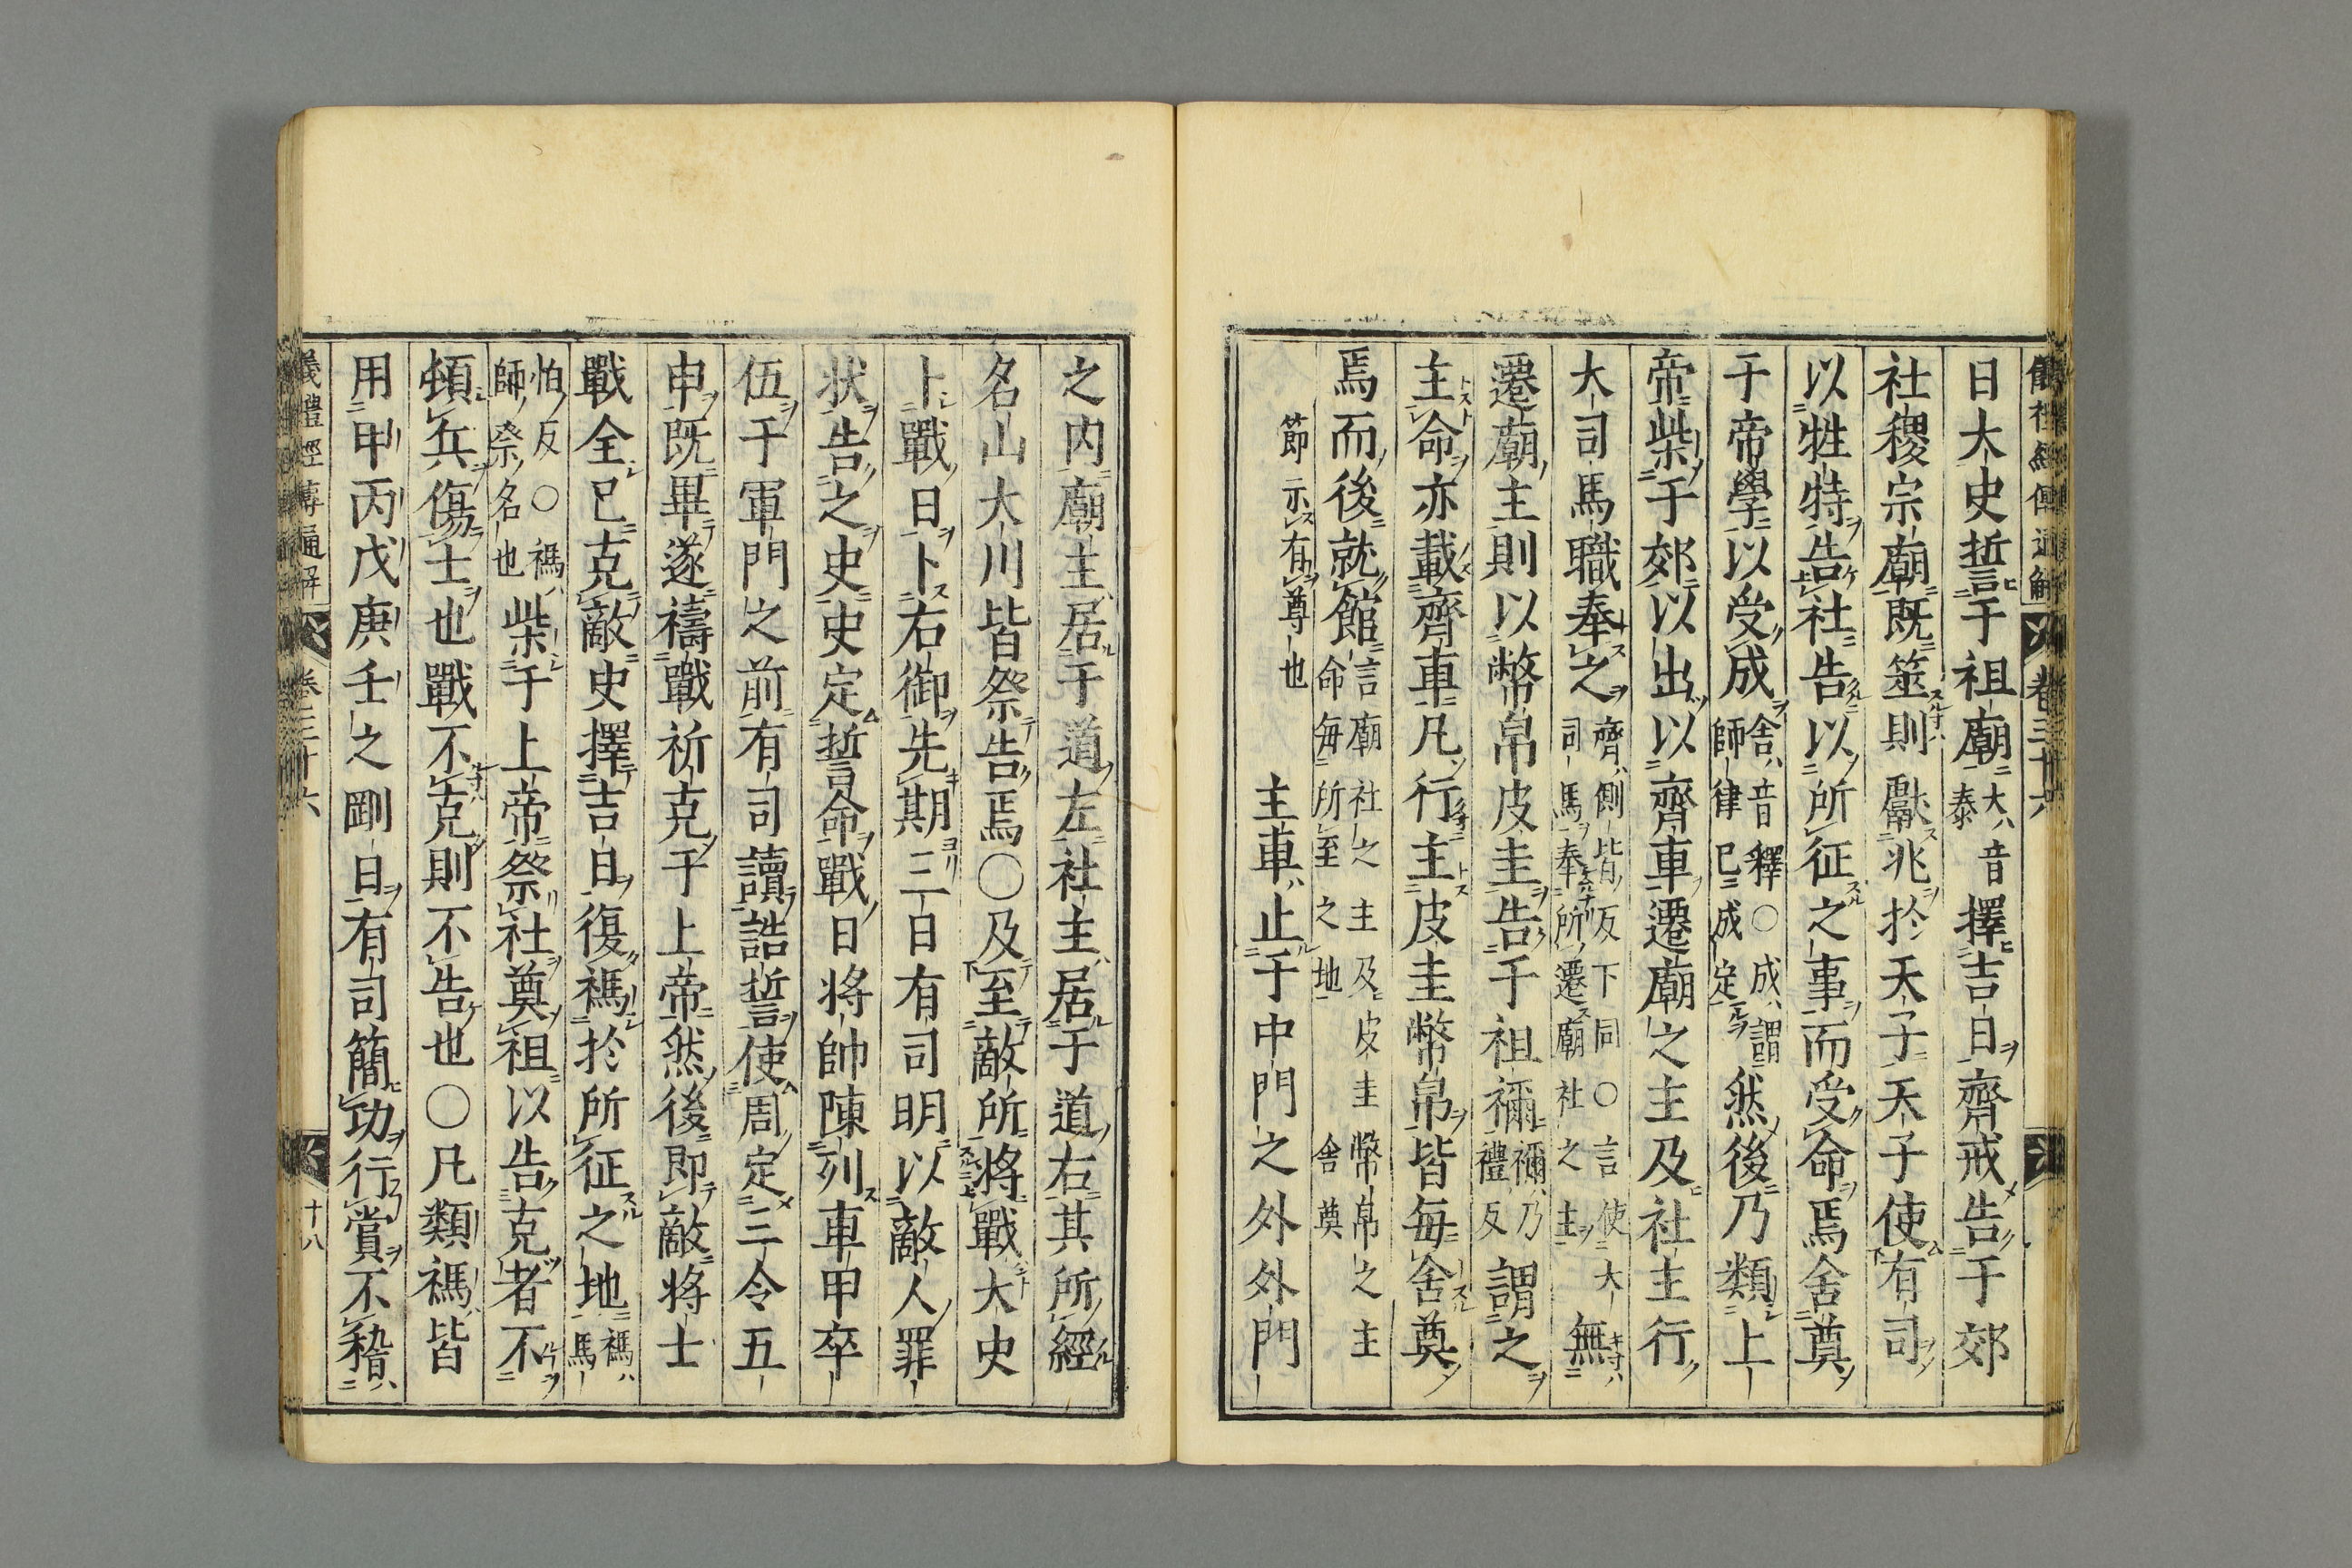 儀禮經傳通解 卷三十六
日大史誓于祖廟大音泰擇吉日齊戒告于郊
社稷宗廟既筮則獻兆於天子天子使有司
以牲特告社告以所征之事而受命焉舍奠
于帝學以受成舍音釋○成謂師律已成定然後乃類上
帝柴于郊以出以齊車遷廟之主及社主行
大司馬職奉之齊側皆反下同○言使大司馬奉所遷廟社之主無
遷廟主則以幣帛皮圭告于祖禰禰乃禮反謂之
主命亦載齊車凡行主皮圭幣帛皆每舍奠
焉而後就館言廟社之主及皮圭幣帛之主命每所至之地舍奠
節示有尊也主車止于中門之外外門
之內廟主居于道左社主居于道右其所經
名山大川皆祭告焉○及至敵所將戰大史
卜戰日卜右御先期三日有司明以敵人罪
狀告之史史定誓命戰日將帥陳列車甲卒
伍于軍門之前有司讀誥誓使周定三令五
申既畢遂禱戰祈克于上帝然後即敵將士
戰全已克敵史擇吉日復禡於所征之地禡馬
怕反○禡師祭名也柴于上帝祭社奠祖以告克者不
頓兵傷士也戰不克則不告也○凡類禡皆
用甲丙戊庚壬之剛日有司簡功行賞不稽
儀禮經傳通解 卷三十六 十八